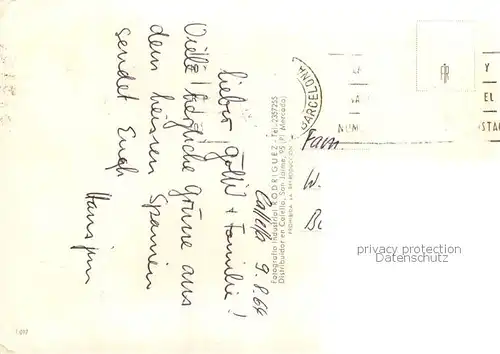 Calella 9.8.64
Lieber Golli + Familie!
Viele herzliche Grüsse aus
dem heissen Spanien
sendet Euch
Hansjürn
Fotografía Industrial RODRIGUEZ - Tel. 2357255
Distribuidor en Calella, San Jaime, 95 (P.º Mercado)
PROHIBIDA LA REPRODUCCIÓN
BARCELONA
Y
EL
Fam
W.
privacy protection
Datenschutz